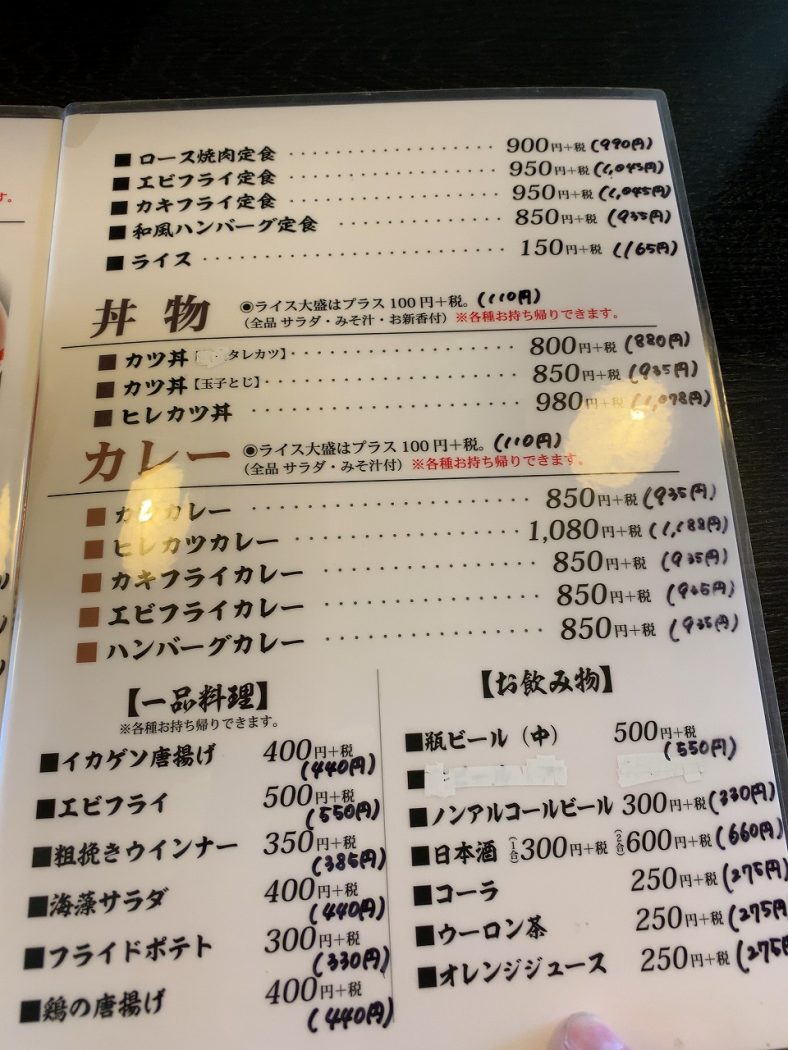 す。
■ ロース焼肉定食 ・・・・・・・・・・・・・・・・・・ 900円+税 (990円)
■ エビフライ定食 ・・・・・・・・・・・・・・・・・・ 950円+税 (1,045円)
■ カキフライ定食 ・・・・・・・・・・・・・・・・・・ 950円+税 (1,045円)
■ 和風ハンバーグ定食 ・・・・・・・・・・・・・・ 850円+税 (935円)
■ ライス ・・・・・・・・・・・・・・・・・・・・・・・・・・ 150円+税 (165円)
丼物 ◉ライス大盛はプラス100円+税。(110円)
(全品 サラダ・みそ汁・お新香付) ※各種お持ち帰りできます。
■ カツ丼【 タレカツ】・・・・・・・・・・・・・・・・ 800円+税 (880円)
■ カツ丼【玉子とじ】・・・・・・・・・・・・・・・・・・ 850円+税 (935円)
■ ヒレカツ丼 ・・・・・・・・・・・・・・・・・・・・ 980円+税 (1,078円)
カレー ◉ライス大盛はプラス100円+税。(110円)
(全品 サラダ・みそ汁付) ※各種お持ち帰りできます。
■ カツカレー ・・・・・・・・・・・・・・・・・・・・ 850円+税 (935円)
■ ヒレカツカレー ・・・・・・・・・・・・・・・・・・ 1,080円+税 (1,188円)
■ カキフライカレー ・・・・・・・・・・・・・・・・ 850円+税 (935円)
■ エビフライカレー ・・・・・・・・・・・・・・・・ 850円+税 (935円)
■ ハンバーグカレー ・・・・・・・・・・・・・・・・ 850円+税 (935円)
【一品料理】
※各種お持ち帰りできます。
■イカゲソ唐揚げ 400円+税
(440円)
■エビフライ 500円+税
(550円)
■粗挽きウインナー 350円+税
(385円)
■海藻サラダ 400円+税
(440円)
■フライドポテト 300円+税
(330円)
■鶏の唐揚げ 400円+税
(440円)
【お飲み物】
■瓶ビール(中) 500円+税
(550円)
■
■ノンアルコールビール 300円+税 (330円)
■日本酒 (1合)300円+税 (2合)600円+税 (660円)
■コーラ 250円+税 (275円)
■ウーロン茶 250円+税 (275円
■オレンジジュース 250円+税 (275円